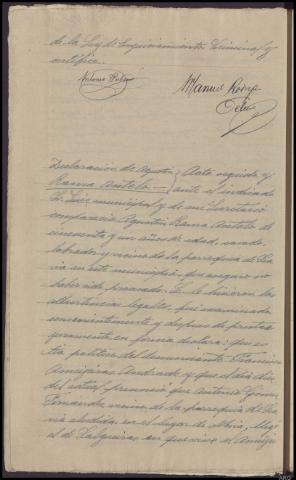 de la Ley de Enjuiciamiento Criminal y
certifico.
Antonio
Manuel Rodrigz
Declaracion de Agustin
Rama Antelo.
Acto seguido y
ante el indicado
Sr. Juez municipal y de mi Secretario
comparecio Agustin Rama Antelo de
cincuenta y un años de edad, casado
labrador y vecino de la parroquia de
via en este municipio, que aseguro no
haber sido procesado. Se le hicieron las
advertencias legales, fué examinado
convenientemente y despues de prestar
juramento en forma declara: que es
tio politico del denunciante Francisco
Ameijeiras Andrade y que el dia diez
del actual, presenció que Antonio Gomez
Fernandez vecino de la parroquia de
via aludida en el lugar de
el de Salgueiras en que vive el Ameije